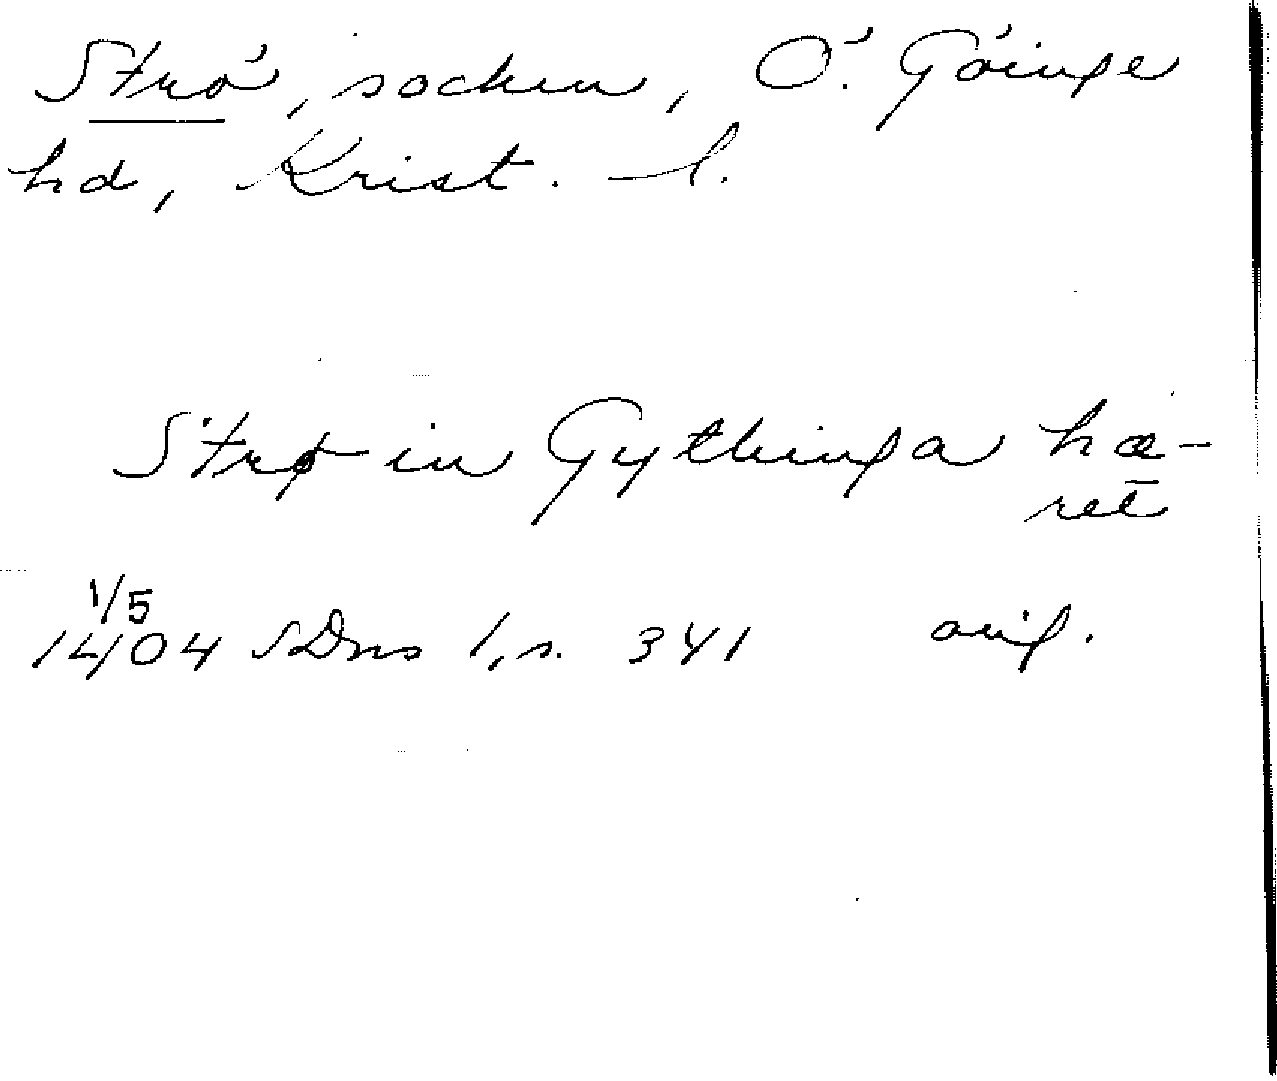 Strö, socken, Ö. Göinge
hd, Krist. l.
Strø in Gythinga hæ-
ret̄
1/5
1404 SDns 1, s. 341 orig.